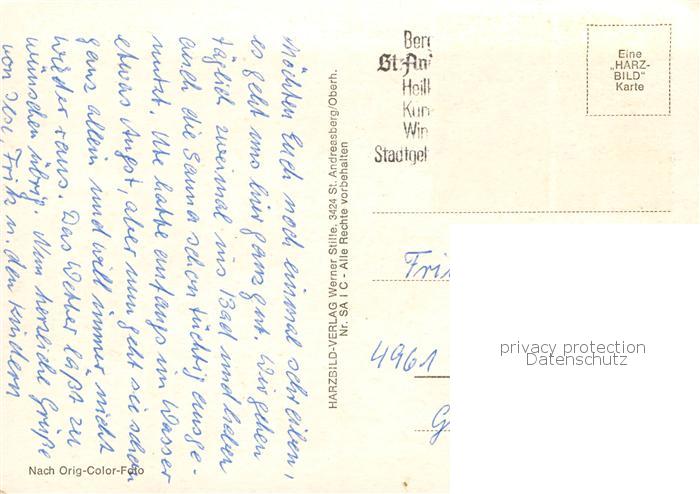 Möchten Euch noch einmal schreiben,
es geht uns hier ganz gut. Wir gehen
täglich zweimal ins Bad und haben
auch die Sauna schon tüchtig ausge-
nutzt. Ute hatte anfangs im Wasser
etwas Angst, aber nun geht sie schon
ganz allein und will immer nicht
wieder raus. Das Wetter läßt zu
wünschen übrig. Nun herzliche Grüße
von Fritz u. den Kindern
Nach Orig-Color-Foto
HARZBILD-VERLAG Werner Stille, 3424 St. Andreasberg/Oberh.
Nr. SA I C - Alle Rechte vorbehalten
Berg
St. An
Heil
Kur
Win
Stadtgel
Eine
„HARZ-
BILD"
Karte
Fri
4961
G
privacy protection
Datenschutz